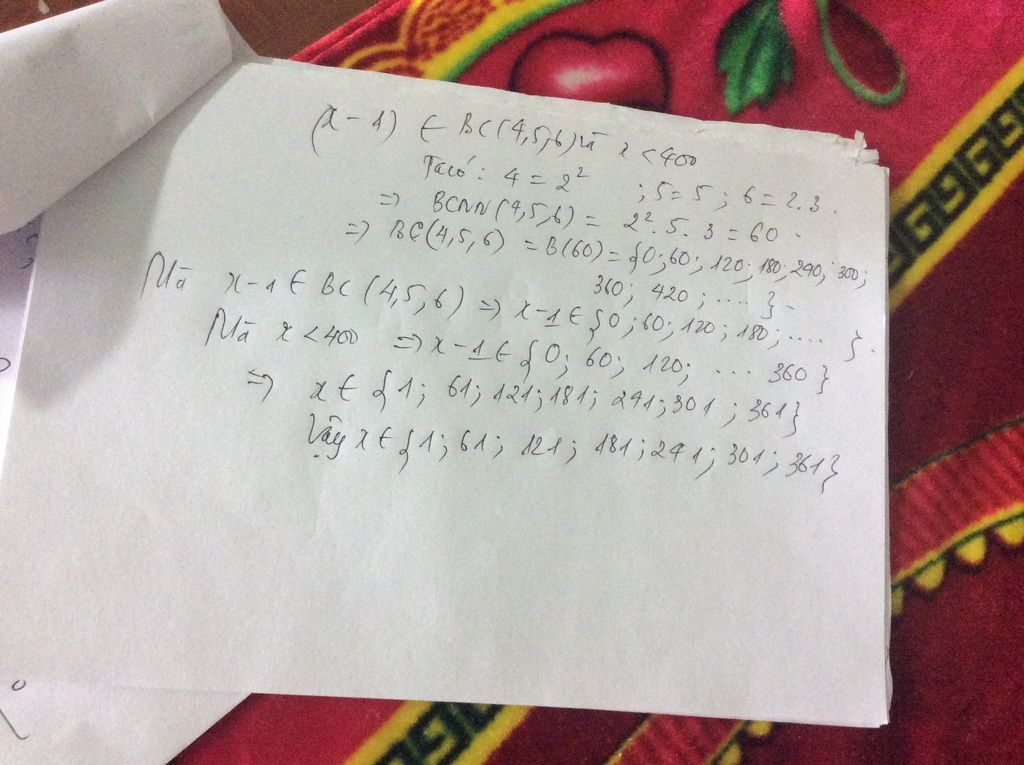 (x - 1) ∈ BC(4,5,6) và x < 400
Ta có: 4 = 2² ; 5 = 5 ; 6 = 2.3.
=> BCNN(4,5,6) = 2².5.3 = 60.
=> BC(4,5,6) = B(60) = {0; 60; 120; 180; 240; 300;
360; 420; .... }.
Mà x-1 ∈ BC(4,5,6) => x-1 ∈ {0; 60; 120; 180; .... }.
Mà x < 400 => x-1 ∈ {0; 60; 120; ... 360}
=> x ∈ {1; 61; 121; 181; 241; 301; 361}
Vậy x ∈ {1; 61; 121; 181; 241; 301; 361}